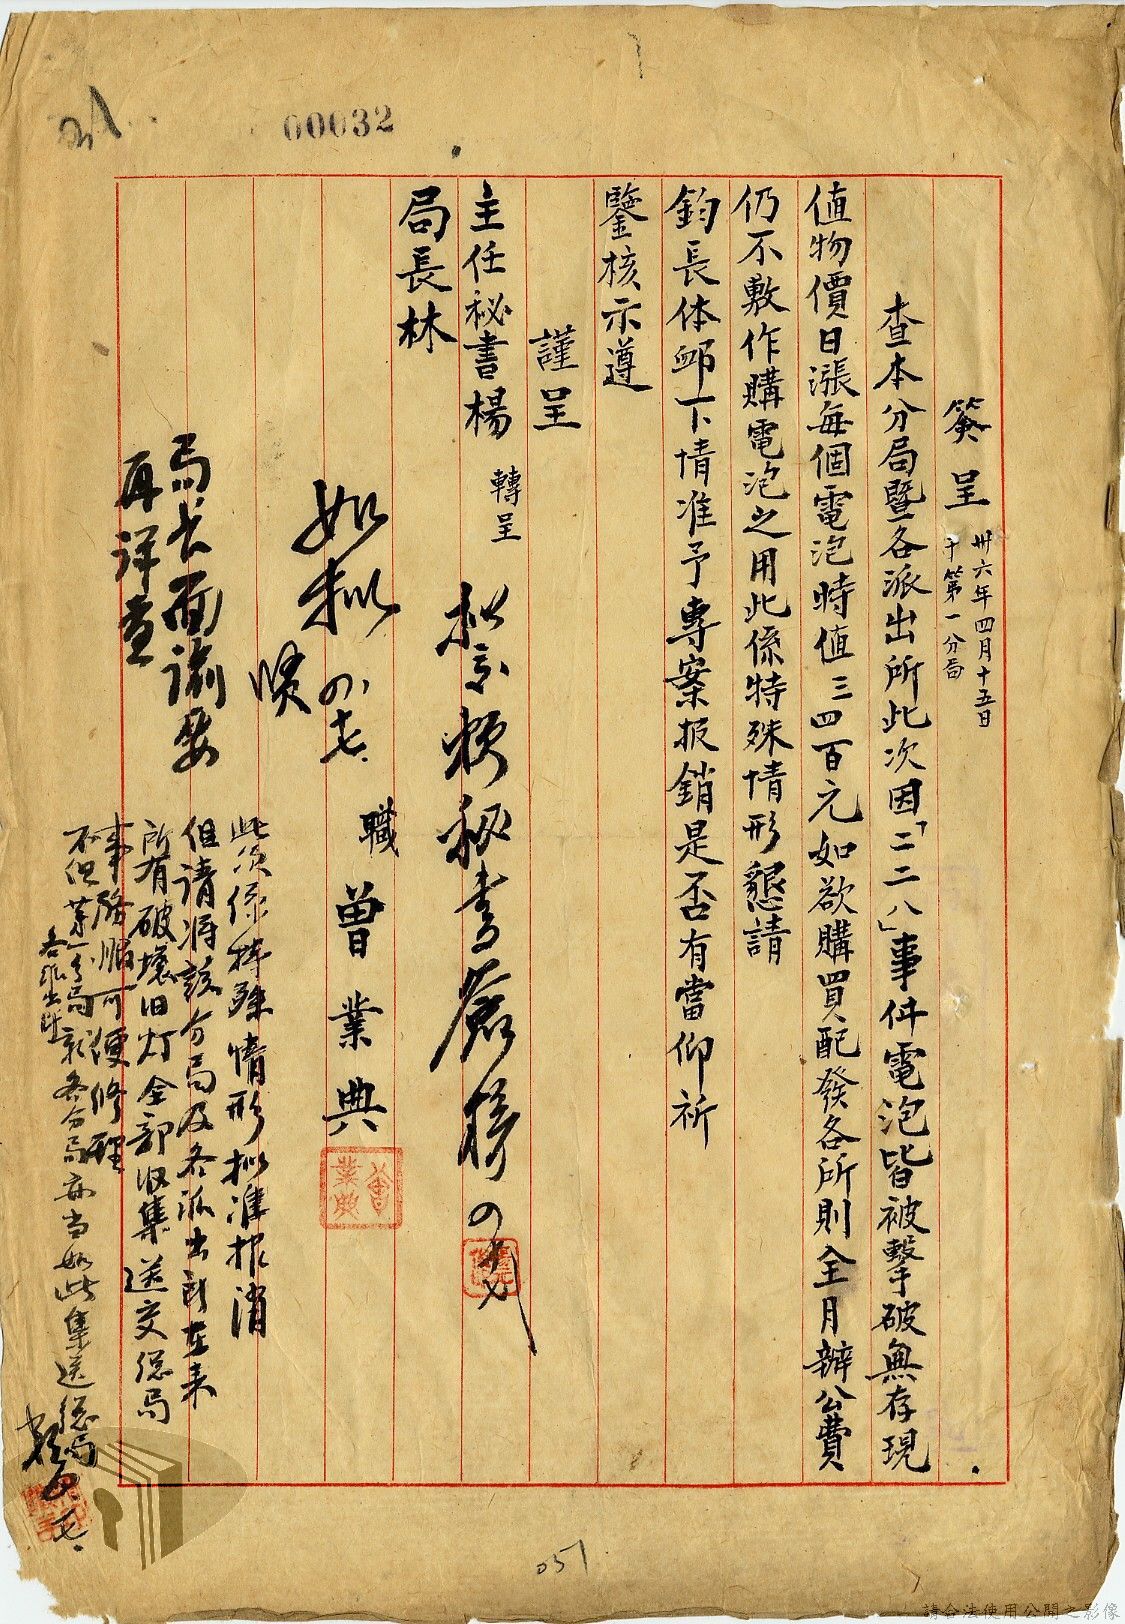 00032
簽呈 卅六年四月十五日
于第一分局
查本分局暨各派出所此次因「二二八」事件電泡皆被擊破無存現
值物價日漲每個電泡時值三四百元如欲購買配發各所則全月辦公費
仍不敷作購電泡之用此係特殊情形懇請
鈞長体邺下情准予專案报銷是否有當仰祈
鑒核示遵
謹呈
主任秘書楊 轉呈
局長林
職 曾業典
如拟
此次係特殊情形拟准报消
但请将该分局及各派出所在来
所有破壞旧灯全部收集送交总局
事務股可便修理
不但第一分局就各分局亦当如此集送总局
各派出所
局长面諭要
再详查
051
請合法使用公開之影像